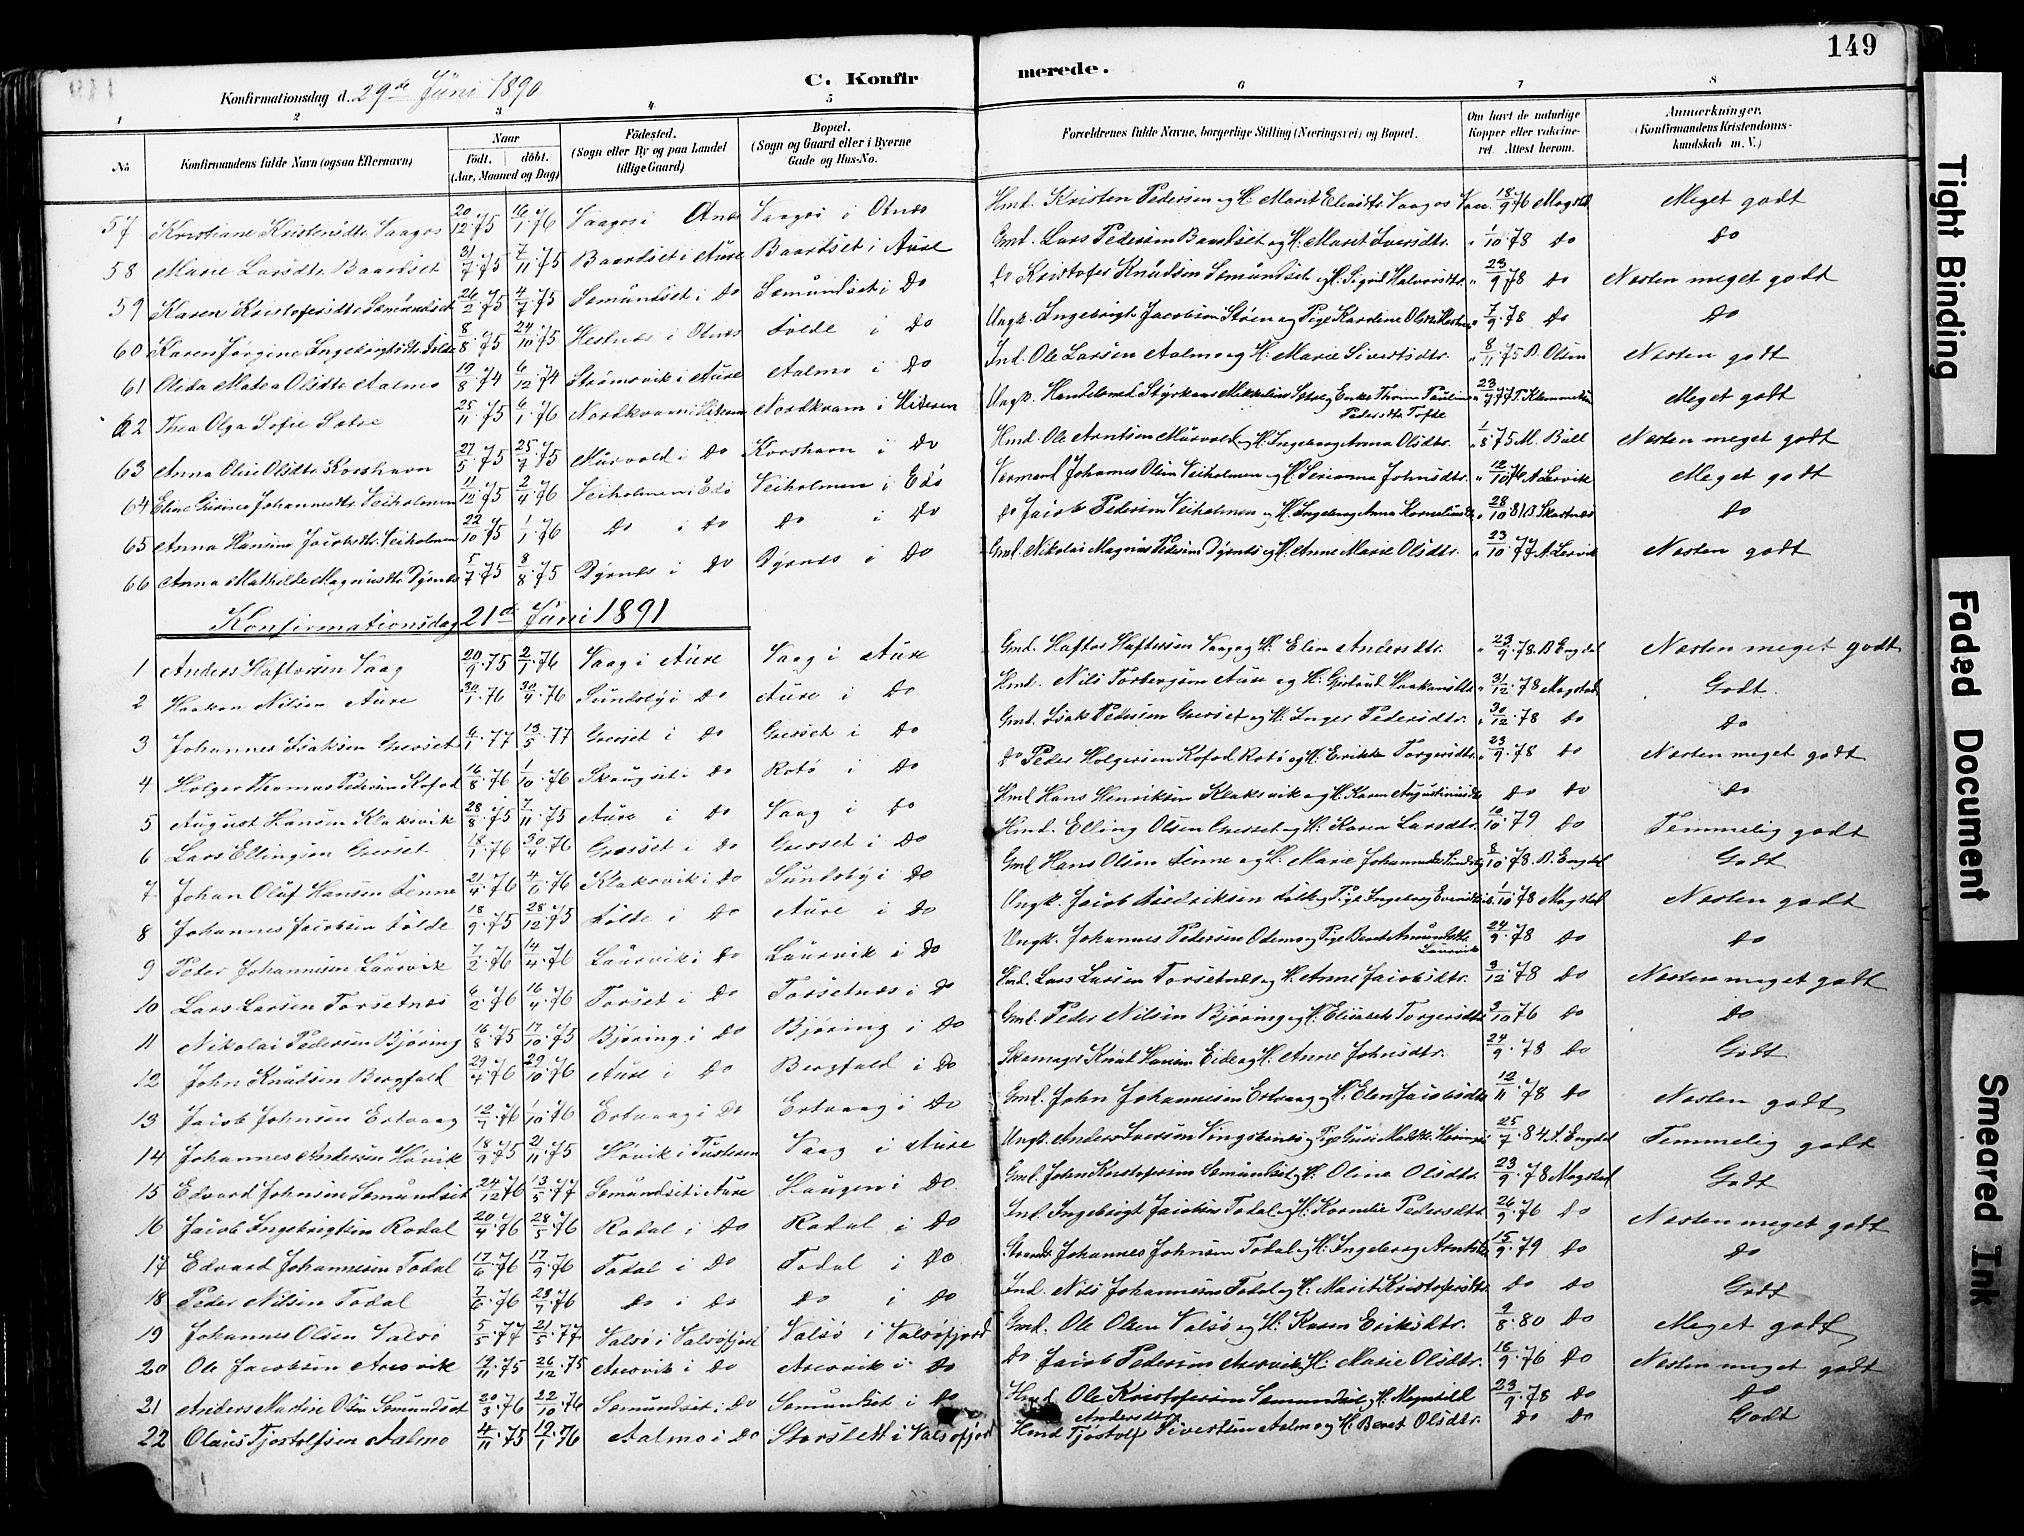 149
C. Konfirmerede.
Konfirmationsdag d. 29de Juni 1890
1 2 3 4 5 6 7 8
No
Konfirmandens fulde Navn (ogsaa Efternavn)
Naar
født. døbt.
(Aar, Maaned og Dag)
Fødested.
(Sogn eller By og paa Landet
tillige Gaard)
Bopæl.
(Sogn og Gaard eller i Byerne
Gade og Hus-No.
Forældrenes fulde Navne, borgerlige Stilling (Næringsvei) og Bopæl.
Om havt de naturlige
Kopper eller vakcine-
ret. Attest herom.
Anmærkninger.
(Konfirmandens Kristendoms-
kundskab m. V.)
57 Kristiane Kristensdtr. Vaagos 20/12 75 16/1 76 Vaagos i Otnæs Vaagos i Otnæs Hmd. Kristen Pedersen og H. Marit Vaagos 18/9 76 Magstad Meget godt
58 Marie Larsdtr. Baardset 31/7 75 7/11 75 Baardset i Aure Baardset i Aure Gmd. Lars Pedersen Baardset og H. Maret Iversdtr. 1/10 78 Do Do
59 Karen Kristofersdtr. Semundset 26/2 75 4/7 75 Semundset i Do Semundset i Do Do Kristofer Knudsen Semundset og H. Sigrid Halvorsdtr. 23/9 78 Do Næsten meget godt
60 Karen Jørgine Ingebrigtsdtr. Folde 8/8 75 24/10 75 Hestnæs i Otnæs Folde i Do Ungk. Ingebrigt Jacobsen Støen og Pige Karoline Olsdtr. 7/9 78 Do Do
61 Olida Matea Olsdtr. Aalmo 19/8 74 6/12 74 Strømsvik i Aure Aalmo i Do Ind. Ole Larsen Aalmo og H. Marie Sivertsdtr. 8/11 75 B. Olsen Næsten godt
62 Thea Olga Sofie Sætre 25/11 75 6/1 76 Nordkvam i Hiteren Nordkvam i Hiteren Ungk. Handelsmd. Styrkaas Mikkelsen og Enke Thrine Pauline
Pedersdtr. Tofte 23/9 77 Meget godt
63 Anna Oline Olsdtr. Korshavn 27/5 75 25/7 75 Murvold i Do Korshavn i Do Hmd. Ole Arntsen Murvold og H. Ingeborg Anna Olsdtr. 1/8 75 M. Bull Næsten meget godt
64 Eline Sirine Johannesdtr. Veiholmen 11/12 75 2/4 76 Veiholmen i Edø Veiholmen i Edø Johannes Olsen Veiholmen og H. Serianna Johnsdtr. 12/10 76 A. Lervik Meget godt
65 Anna Hansine Jacobsdtr. Veiholmen 22/10 75 1/1 76 Do i Do Do i Do Do Jacob Pedersen Veiholmen og H. Ingeborg Anna Kornelius 28/10 81 B. Skartnes Do
66 Anna Mathilde Magnusdtr. Dyrnes 5/7 75 8/8 75 Dyrnes i Do Dyrnes i Do Gmd. Nikolai Magnus Pedersen Dyrnes og H. Anne Marie Olsdtr. 23/10 77 A. Lervik Næsten godt
Konfirmationsdag 21de Juni 1891
1 Anders Haftorsen Vaag 20/9 75 2/1 76 Vaag i Aure Vaag i Aure Gmd. Haftor Haftorsen Vaag og H. Elen Andersdtr. 23/9 78 B. Engdal Næsten meget godt
2 Haakon Nilsen Aure 30/1 76 30/4 76 Sundsby i Do Aure i Do Hmd. Nils Torbergsen Aure og H. Gjertrud Haakonsdtr. 31/12 78 Magstad Godt
3 Johannes Isaksen Grevset 6/1 77 13/5 77 Grevset i Do Grevset i Do Gmd. Isak Pedersen Grevset og H. Inger Pedersdtr. 30/12 78 Do Do
4 Holger Thomas Pedersen Kofod 16/8 76 1/10 76 Skougset i Do Rotø i Do Do Peder Holgersen Kofod Rotø og H. Erikke Torgersdtr. 23/9 78 Do Næsten meget godt
5 August Hansen Klaksvik 28/8 75 7/11 75 Aure i Do Vaag i Do Hmd. Hans Henriksen Klaksvik og H. Karen Augustinusdtr. Do Do Do
6 Lars Ellingsen Grevset 18/1 76 30/4 76 Grevset i Do Grevset i Do Hmd. Elling Olsen Grevset og H. Karen Larsdtr. 10/10 79 Do Temmelig godt
7 Johan Oluf Hansen Finne 21/4 76 4/6 76 Klaksvik i Do Sundsby i Do Gmd. Hans Olsen Finne og H. Marie Johannesdtr. Sundsby 8/10 78 B. Engdal Godt
8 Johannes Jacobsen Folde 18/9 75 28/12 75 Folde i Do Aure i Do Ungk. Jacob Fredriksen Folde og Pige Ingeborg Evensdtr. 1/10 78 Magstad Næsten godt
9 Peter Johannesen Laurvik 7/2 76 14/4 76 Laurvik i Do Laurvik i Do Ungk. Johannes Pedersen Odemo og Pige Beret Amundsdtr.
Laurvik 24/9 78 Do Do
10 Lars Larsen Torsetnæs 6/2 76 16/4 76 Torset i Do Torsetnæs i Do Hmd. Lars Larsen Torsetnæs og H. Anne Jacobsdtr. 3/12 78 Do Næsten meget godt
11 Nikolai Pedersen Bjøring 16/8 75 17/10 75 Bjøring i Do Bjøring i Do Gmd. Peder Nilsen Bjøring og H. Elisabeth Torgersdtr. 3/10 76 Do Do
12 John Knudsen Bergfald 29/4 76 29/10 76 Aure i Do Bergfald i Do Skomager Knud Hansen Eide og H. Anne Johnsdtr. 24/9 78 Do Godt
13 Jacob Johnsen Ertvaag 12/7 76 1/10 76 Ertvaag i Do Ertvaag i Do Gmd. John Johannesen Ertvaag og H. Elen Jacobsdtr. 12/11 78 Do Næsten godt
14 Johannes Andersen Høvik 18/9 75 21/11 75 Høvik i Tusteren Vaag i Aure Ungk. Anders Iversen og Pige Guri 25/7 84 A. Engdal Temmelig godt
15 Edvard Johnsen Semundset 24/12 76 13/5 77 Semundset i Aure Haugen i Do Gmd. John Kristofersen Semundset og H. Oline Olsdtr. 23/9 78 Magstad Godt
16 Jacob Ingebrigtsen Rodal 20/4 76 28/5 76 Rodal i Do Rodal i Do Ind. Ingebrigt Jacobsen Todal og H. Kornelie Pedersdtr. 26/9 76 Do Næsten meget godt
17 Edvard Johannesen Todal 17/6 76 17/9 76 Todal i Do Todal i Do Johannes Johnsen Todal og H. Ingeborg Arntsdtr. 15/9 79 Do Do
18 Peder Nilsen Todal 7/6 76 23/7 76 Do i Do Do i Do Ind. Nils Johannesen Todal og H. Marit Kristofersdtr. Do Do Godt
19 Johannes Olsen Valsø 5/5 77 21/5 77 Valsø i Valsøfjord Valsø i Valsøfjord Gmd. Ole Olsen Valsø og H. Karen Eriksdtr. 9/8 80 Do Meget godt
20 Ole Jacobsen Arasvik 19/11 75 26/12 75 Arasvik i Do Arasvik i Do Do Jacob Pedersen Arasvik og H. Marie Olsdtr. 16/9 76 Do Næsten meget godt
21 Anders Martin Olsen Semundset 20/3 76 22/10 76 Semundset i Do Semundset i Do Hmd. Ole Kristofersen Semundset og H. Magnhild
Andersdtr. 23/9 78 Do Do
22 Olaus Tjostolfsen Aalmo 4/11 75 19/1 76 Aalmo i Do Storslett i Valsøfjord Hmd Tjostolf Sivertsen Aalmo og H. Beret Olsdtr. Do Do Godt
Tight Binding
Faded Document
Smeared Ink